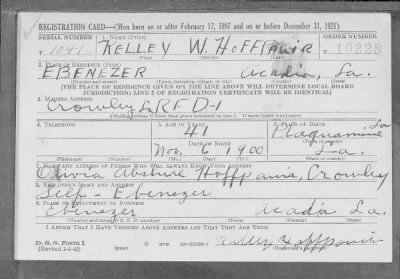 REGISTRATION CARD—(Men born on or after February 17, 1897 and on or before December 31, 1921)
SERIAL NUMBER 1. NAME (Print) ORDER NUMBER
T 1041 KELLEY W. HOFFPAUIR T 10328
(First) (Middle) (Last)
2. PLACE OF RESIDENCE (Print)
EBENEZER Acadia, La.
(Number and street) (Town, township, village, or city) (County) (State)
[THE PLACE OF RESIDENCE GIVEN ON THE LINE ABOVE WILL DETERMINE LOCAL BOARD
JURISDICTION; LINE 2 OF REGISTRATION CERTIFICATE WILL BE IDENTICAL]
3. MAILING ADDRESS
Crowley La RFD-1
[Mailing address if other than place indicated on line 2. If same insert word same]
4. TELEPHONE 5. AGE IN YEARS 6. PLACE OF BIRTH
41 Plaquamine La
DATE OF BIRTH
Nov. 6 1900 La.
(Exchange) (Number) (Mo.) (Day) (Yr.) (State or country)
7. NAME AND ADDRESS OF PERSON WHO WILL ALWAYS KNOW YOUR ADDRESS
Olivia Abshire Hoffpauir, Crowley
8. EMPLOYER'S NAME AND ADDRESS
Self - Ebenezer
9. PLACE OF EMPLOYMENT OR BUSINESS
Ebenezer Acadia La.
(Number and street or R. F. D. number) (Town) (County) (State)
I AFFIRM THAT I HAVE VERIFIED ABOVE ANSWERS AND THAT THEY ARE TRUE.
D. S. S. Form 1
(Revised 1-1-42) Kelley Hoffpauir